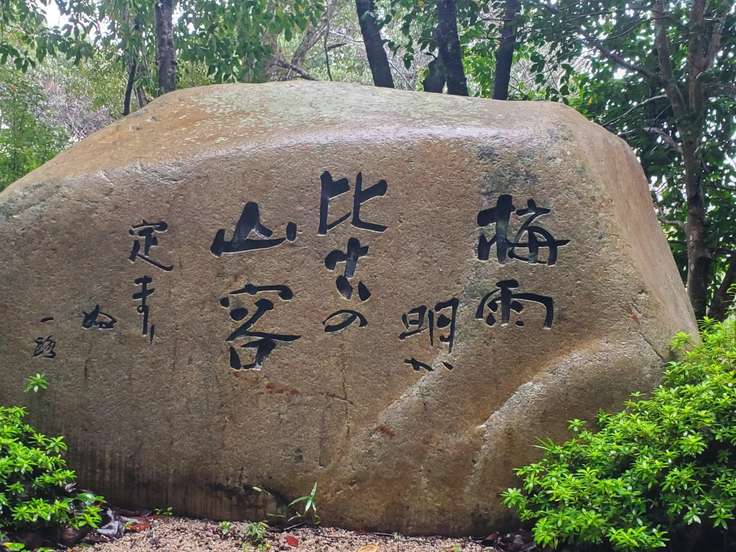 梅雨
明け
比古の
山容
定まり
ぬ
一路